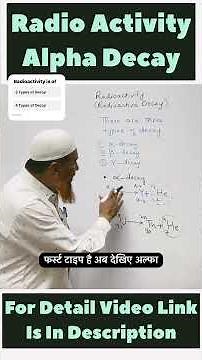 Radio Activity
Alpha Decay
Radioactivity is of
3 Types of Decay
4 Types of Decay
Radioactivity
(Radioactive Decay)
There are three
types of decay
1) α-decay
2) β-decay
3) γ-decay
• α-decay
फर्स्ट टाइप है अब देखिए अल्फा
For Detail Video Link
Is In Description